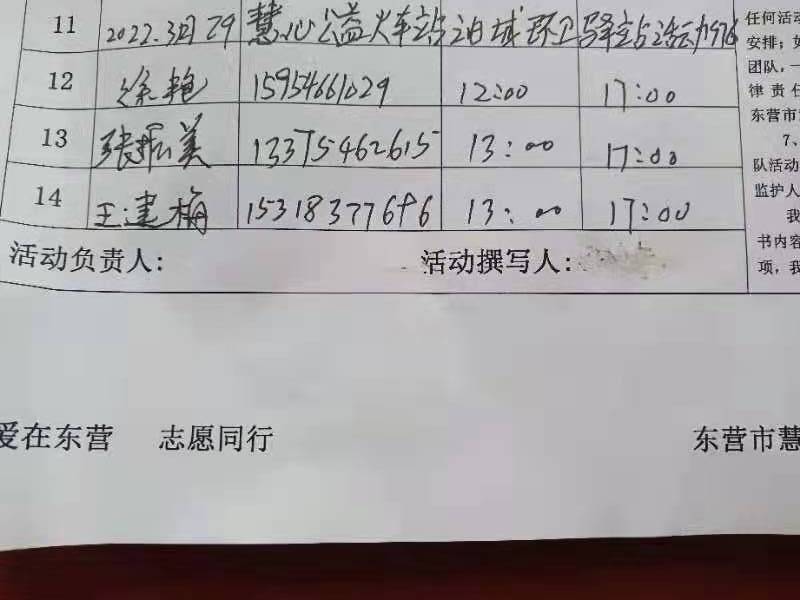 11 2022.3月29 慧心公益火车站泊城环卫驿站活动976
12 徐艳 15954661029 12:00 17:00
13 张振美 13375462615 13:00 17:00
14 王建梅 15318377696 13:00 17:00
活动负责人: 活动撰写人:
爱在东营 志愿同行 东营市慧
任何活动
安排;如
团队,一
律责任
东营市
7、
队活动
监护人
我
书内容
项,我